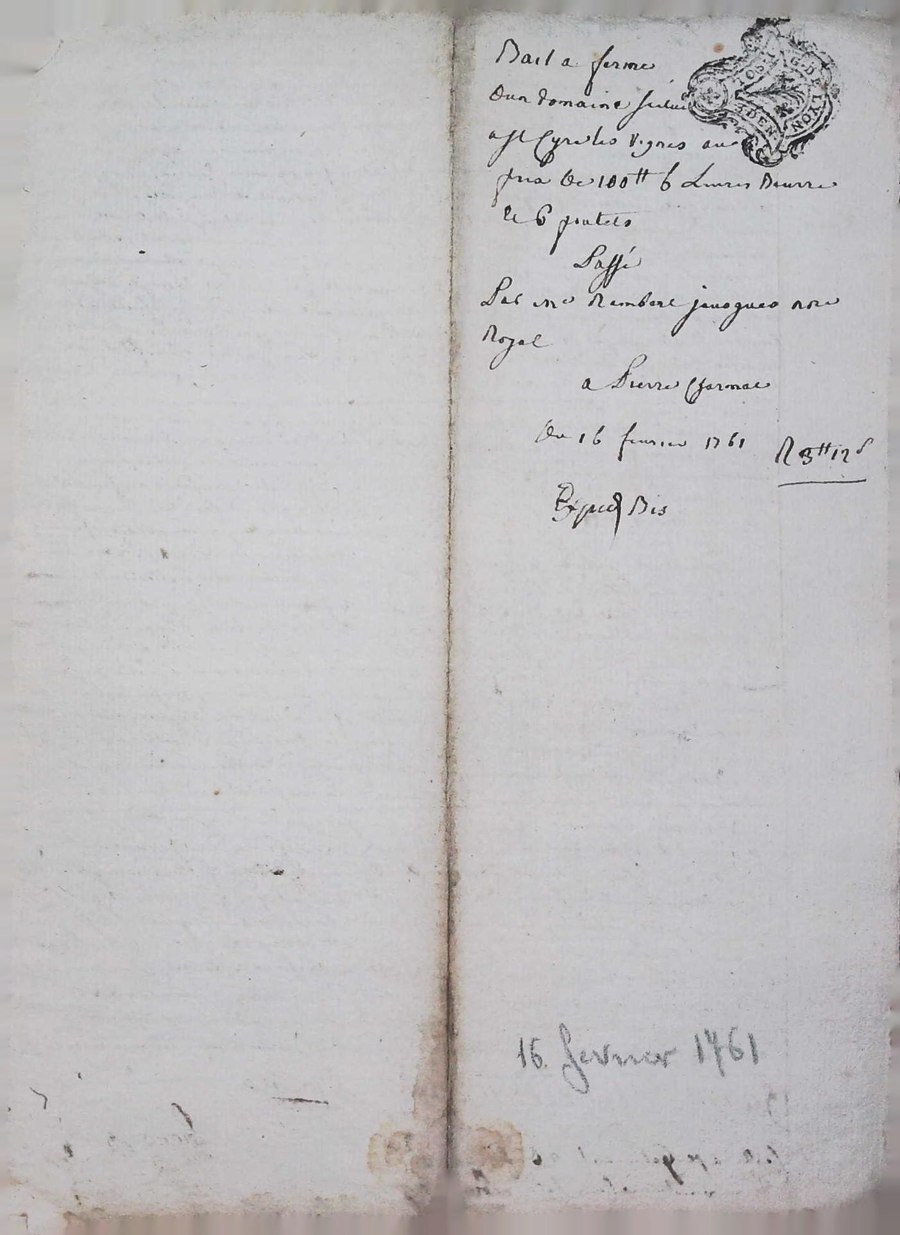 Bail a ferme
dun domaine scitué
a st Cyr les vignes au
prix de 100tt 6 Livres Beurre
et 6 poulets
Passé
Par me Rambert javogues nore
Royal
a Pierre Charmat
du 16 fevrier 1761
R 3tt 12s
Exped Bis
LYON
3 DEN.
16. fevrier 1761